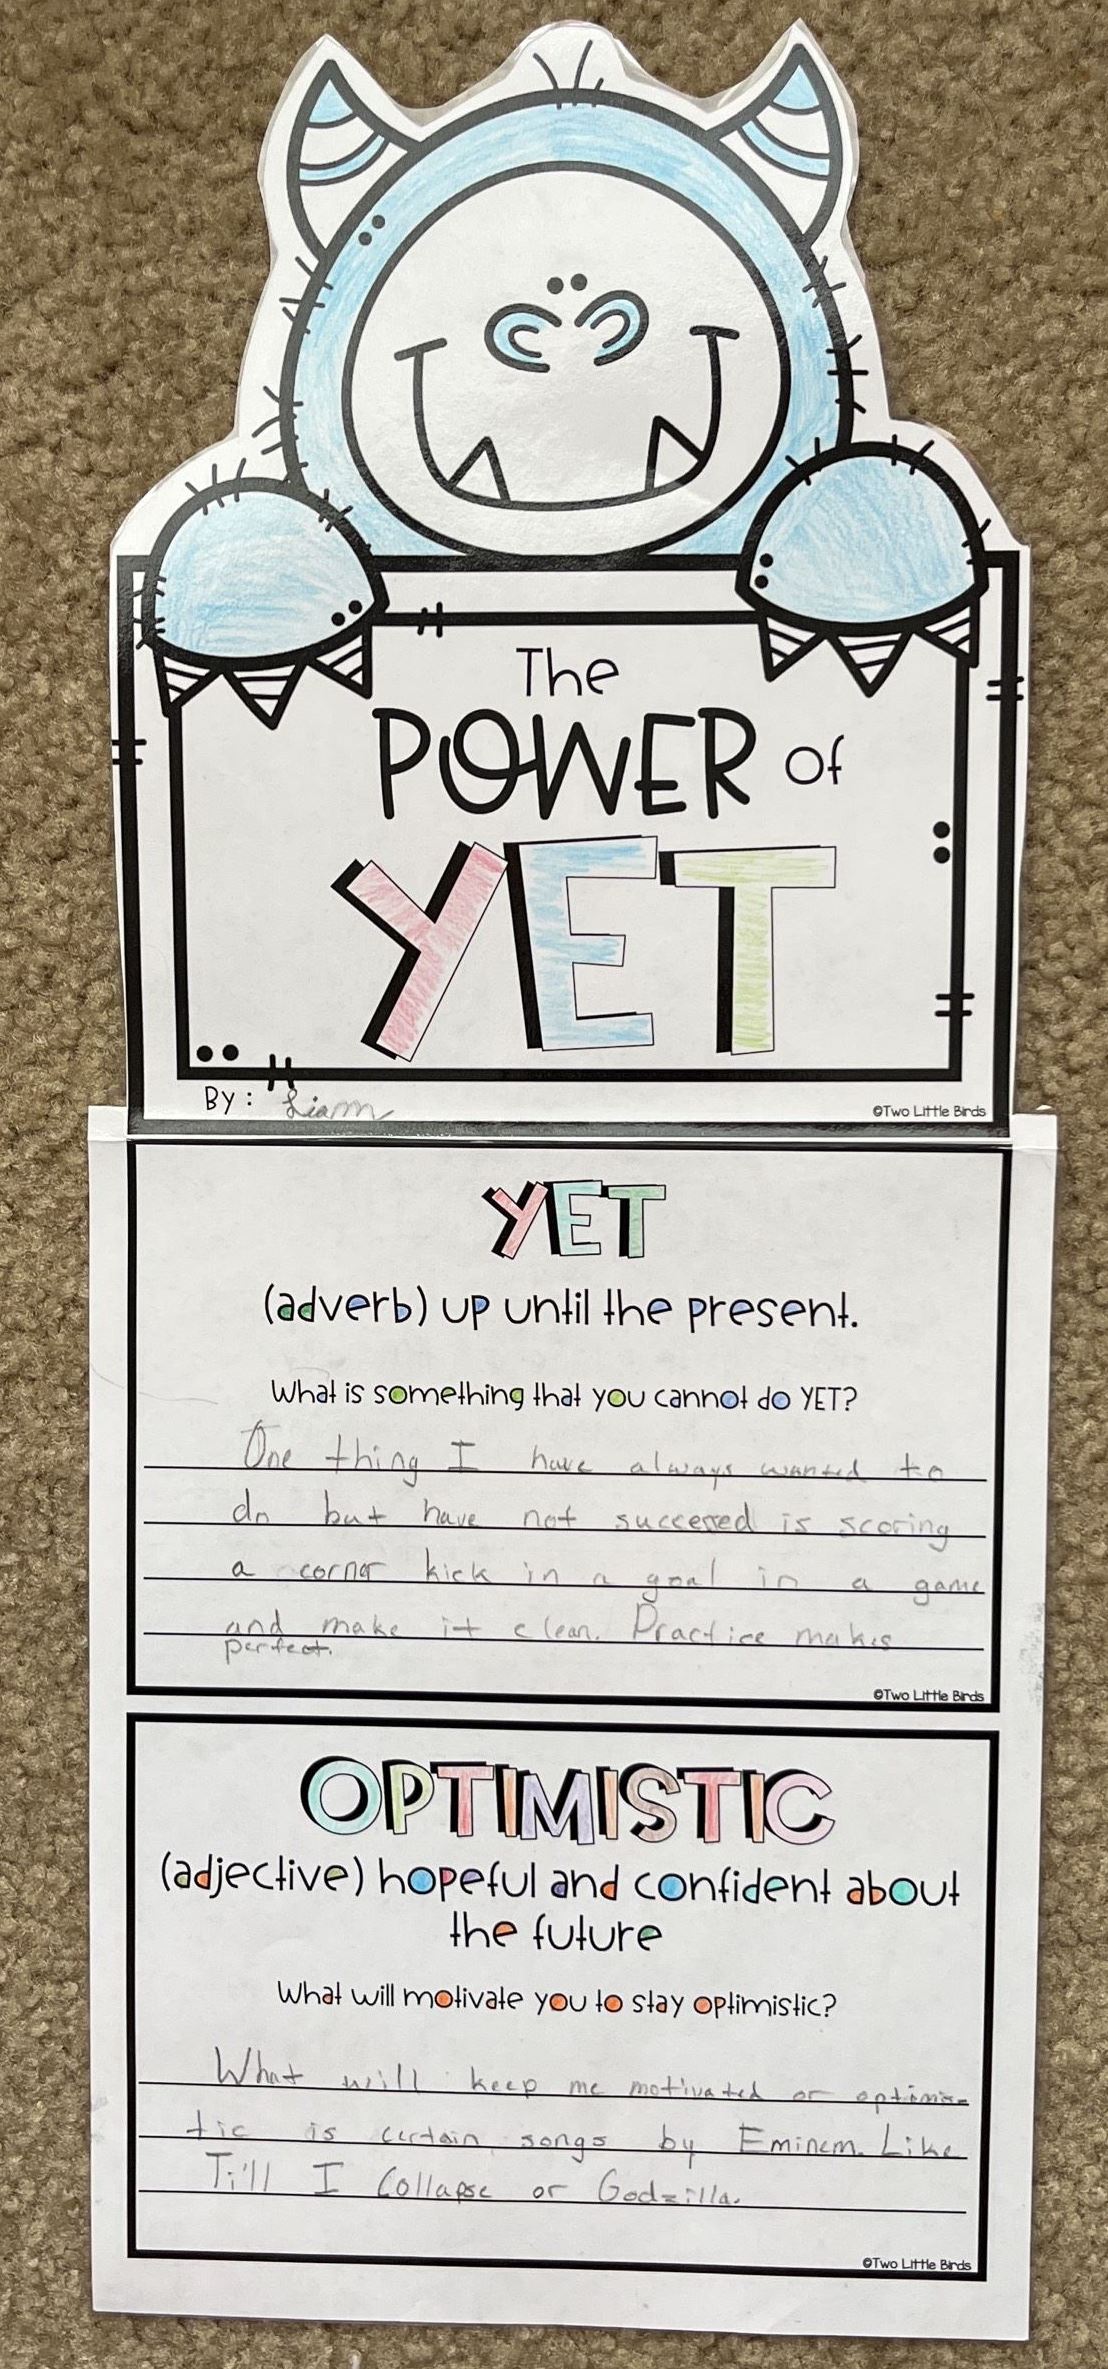 The
POWER of
YET
By: Liam
©Two Little Birds
YET
(adverb) up until the present.
What is something that you cannot do YET?
One thing I have always wanted to
do but have not succeeed is scoring
a corner kick in a goal in a game
and make it clean. Practice makes
perfect.
©Two Little Birds
OPTIMISTIC
(adjective) hopeful and confident about
the future
What will motivate you to stay optimistic?
What will keep me motivated or optimis-
tic is certain songs by Eminem. Like
Ti'll I Collapse or Godzilla.
©Two Little Birds